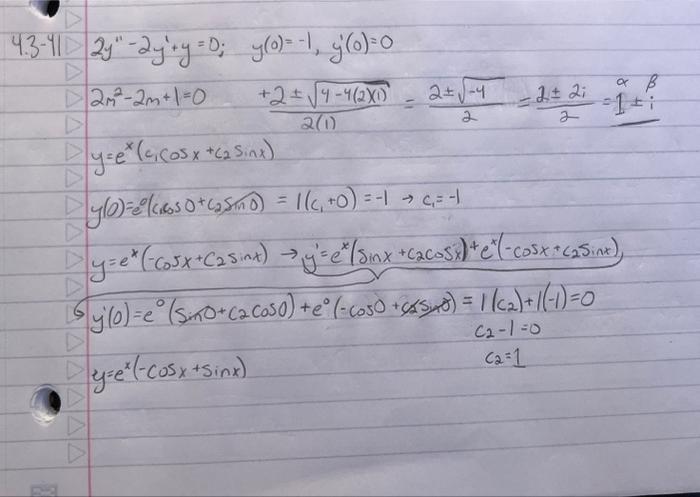 4.3-41 2y"-2y'+y=0; y(0)=-1, y'(0)=0
2m²-2m+1=0 +2±√4-4(2)(1) / 2(1) = 2±√-4 / 2 = 2±2i / 2 = 1±i α β
y=eˣ(c₁cosx+c₂sinx)
y(0)=e⁰(c₁cos0+c₂sin0) = 1(c₁+0)=-1 → c₁=-1
y=eˣ(-cosx+c₂sinx) → y'=eˣ(sinx+c₂cosx)+eˣ(-cosx+c₂sinx)
y'(0)=e⁰(sin0+c₂cos0)+e⁰(-cos0+c₂sin0) = 1(c₂)+1(-1)=0
c₂-1=0
c₂=1
y=eˣ(-cosx+sinx)